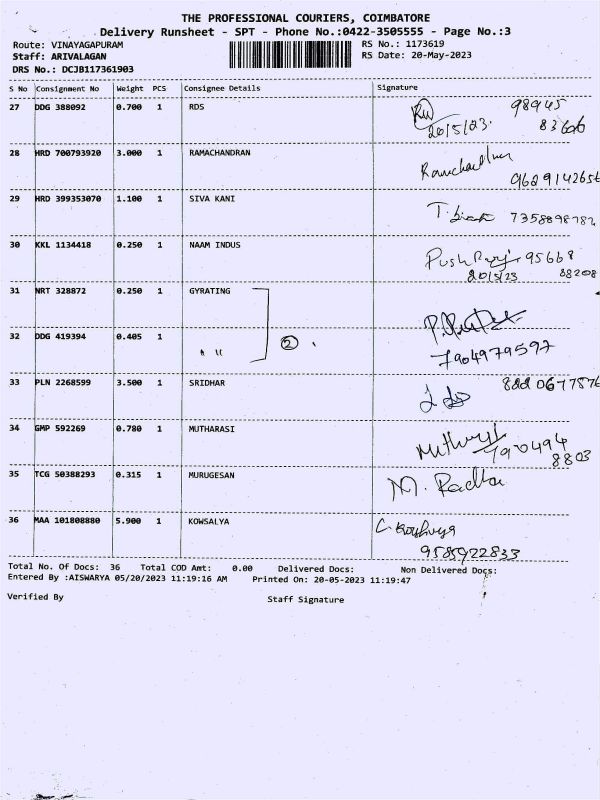 THE PROFESSIONAL COURIERS, COIMBATORE
Delivery Runsheet - SPT - Phone No.:0422-3505555 - Page No.:3
Route: VINAYAGAPURAM
Staff: ARIVALAGAN
DRS No.: DCJB117361903
RS No.: 1173619
RS Date: 20-May-2023
S No Consignment No Weight PCS Consignee Details Signature
27 DDG 388092 0.700 1 RDS 98945
20/5/23. 83606
28 HRD 700793920 3.000 1 RAMACHANDRAN Ramachadhran
9629142656
29 HRD 399353070 1.100 1 SIVA KANI T. 7358898782
30 KKL 1134418 0.250 1 NAAM INDUS 95668
20/5/23 88208
31 NRT 328872 0.250 1 GYRATING
32 DDG 419394 0.405 1 " " 2
7904979597
33 PLN 2268599 3.500 1 SRIDHAR
34 GMP 592269 0.780 1 MUTHARASI 790494
8803
35 TCG 50388293 0.315 1 MURUGESAN M. Radha
36 MAA 101808880 5.900 1 KOWSALYA C.
9585922833
Total No. Of Docs: 36 Total COD Amt: 0.00 Delivered Docs: Non Delivered Docs:
Entered By :AISWARYA 05/20/2023 11:19:16 AM Printed On: 20-05-2023 11:19:47
Verified By Staff Signature